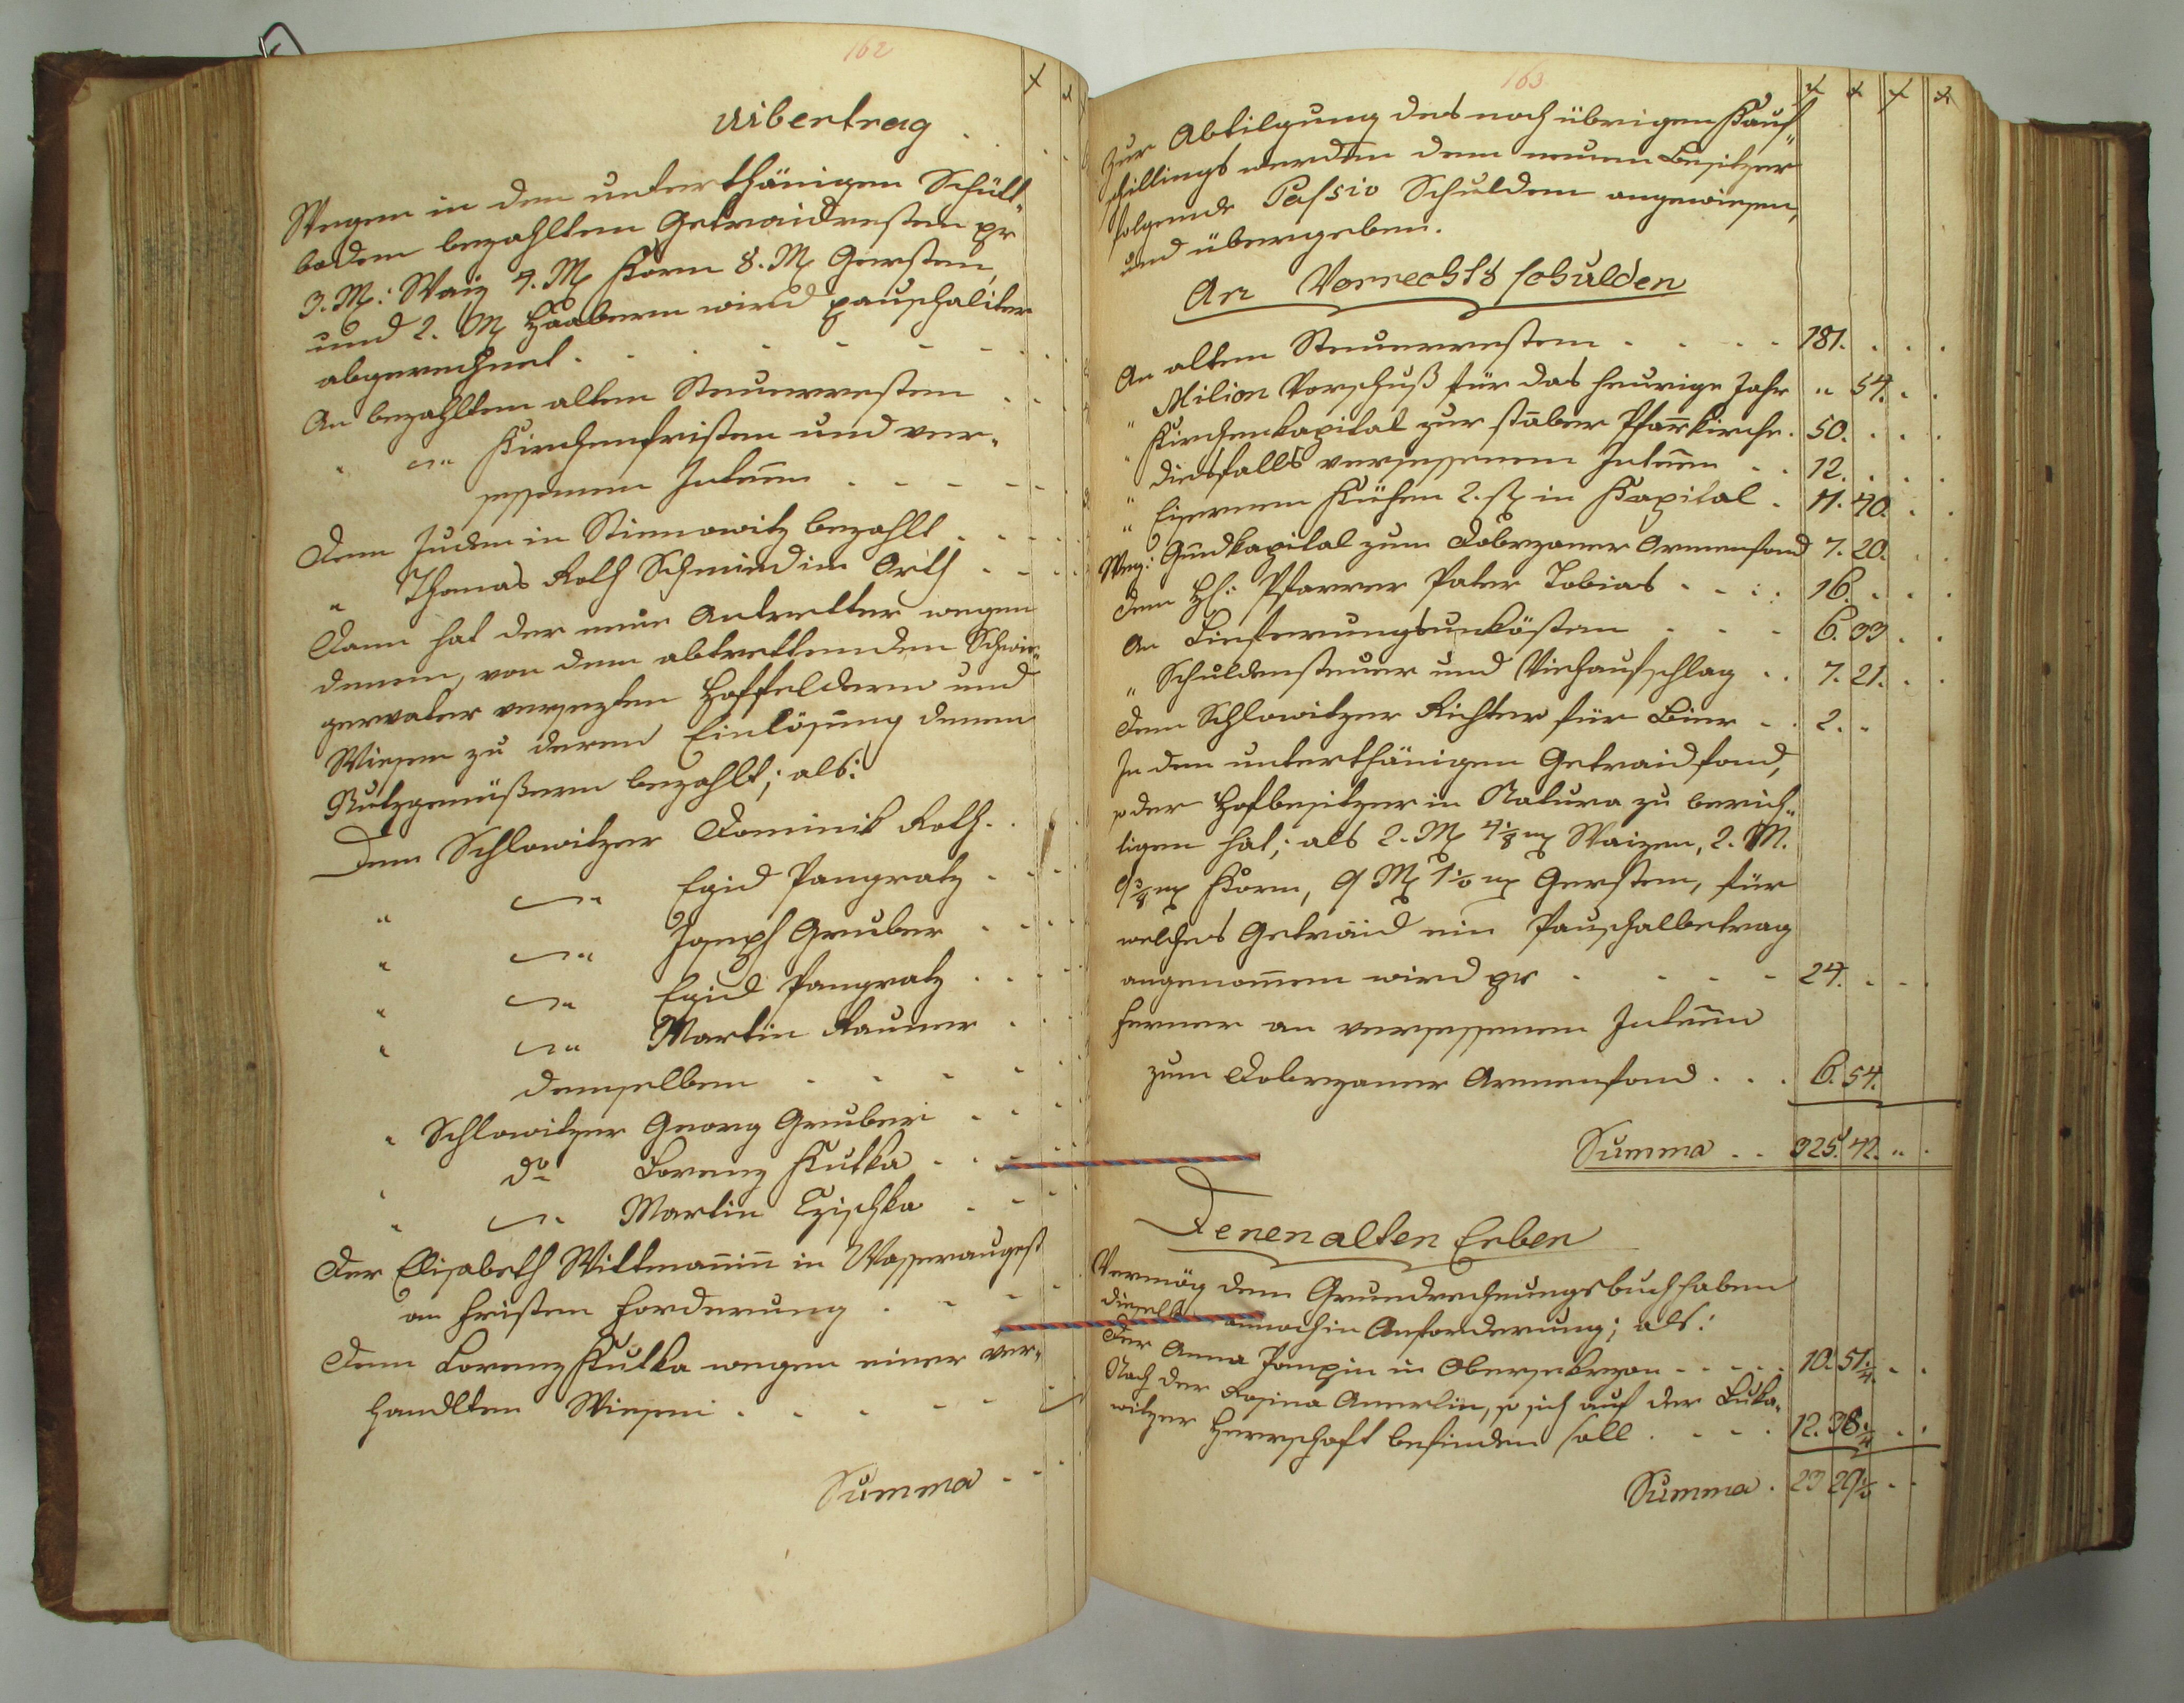 162
Uibertrag
Wegen in den unterthänigen Schütt-
boden bezahlten Getraidresten pr
3. M: Waiz 4. M Korn 8. M Gersten,
und 2. M Haabern wird pauschaliter
abgerechnet.
An bezahlten alten Steuerresten
" " Kirchenfristen und ver-
sessenen Inteßen
Dem Juden in Stienowitz bezahlt
" Thomas Roth Schmied im Orth
Dann hat der neue Antretter wegen
denen, von dem abtrettenden Schwie-
gervater versezten Hoffeldern und
Wiesen zu deren Einlösung denen
Nutzgenüßern bezahlt; als:
Dem Schlowitzer Dominik Roth.
" " Egid Pangratz
" " Joseph Gruber
" " Egid Pangratz
" " Martin Rauner
demselben
" Schlowitzer Georg Gruber
" do Lorenz Kutka
" " Martin Tzischka
Der Elisabeth Wittmañin in Wasseraugest
an fristen forderung
Dem Lorenz Kutka wegen einer ver-
handelten Wiesen
Summa
163.
Zur Abtilgung des noch übrigen Kauf-
schillings werden dem neuen Besitzer
folgende Passiv Schulden angewiesen,
und übergeben.
An Vorrechts schulden
An alten Steuerresten 181.
" Milion Vorschuß für das heurige Jahr " 54.
" Kirchenkapital zur staber Pfarrkirche. 50.
" diesfalls versessenen Inteßen 12.
" Eisernen Kühen 2. st in Kapital 11. 40.
Weg: Gundkapital zum Dobrzaner Armenfond 7. 20.
dem H: Pfarrer Pater Tobias 16.
An Lieferungsunkösten 6. 33
" Schuldensteuer und Viehaufschlag 7. 21.
Dem Schlowitzer Richter für Bier 2. "
In den unterthänigen Getraidfond,
so der Hofbesitzer in Natura zu berich-
tigen hat; als 2. M 4 1/8 m Waizen, 2. M.
9 3/8 m Korn, 9 M 1 1/2 m Gersten, für
welches Getraid ein Pauschalbetrag
angenom̄en wird pr 24.
ferner an versessenen Inteßen
zum Dobrzaner Armenfond 6. 54.
Summa 325. 42. "
Denen alten Erben
Vermög dem Grundrechnungsbuch haben
dieselb annoch in Anforderung; als:
Der Anna in Obersekrzan 10. 51 1/4
Nach der Rosina Annerlin, so sich auf der Luka-
witzer Herrschaft befinden soll 12. 38 1/4
Summa. 23 29 1/2